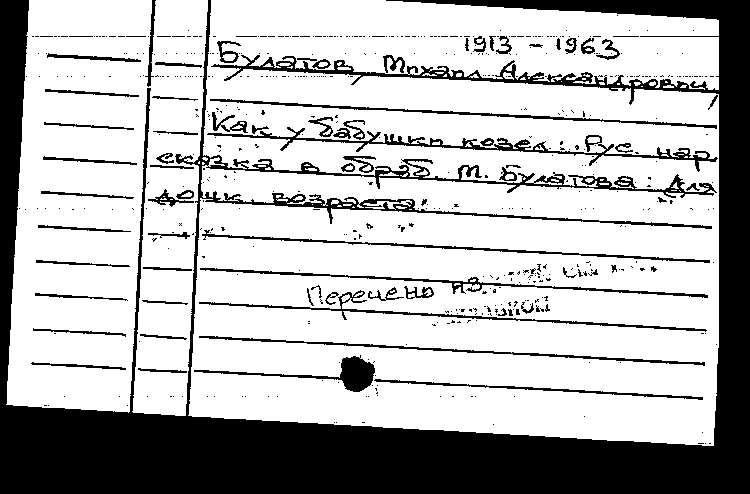 1913 – 1963
Булатов, Михаил Александрович,
Как у бабушки козел: Рус. нар.
сказка в обраб. М. Булатова: Для
дошк. возраста.
Перечень